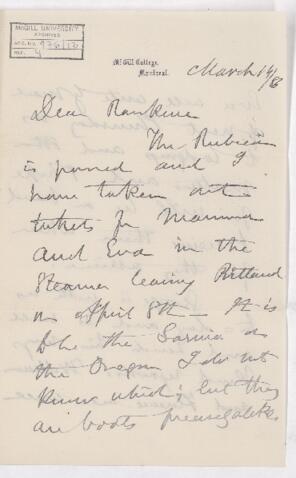 McGILL UNIVERSITY
ARCHIVES
ACC. NO. 976/12
REF. 4
McGill College,
Montreal.
March 14/86
Dear Rankine
The Rubicon
is passed and I
have taken out
tickets for Mamma
and Eva in the
Steamer leaving Portland
on April 8th. It is
to be the Sarnia or
the Oregon I do not
know which; but they
are boats precisely alike